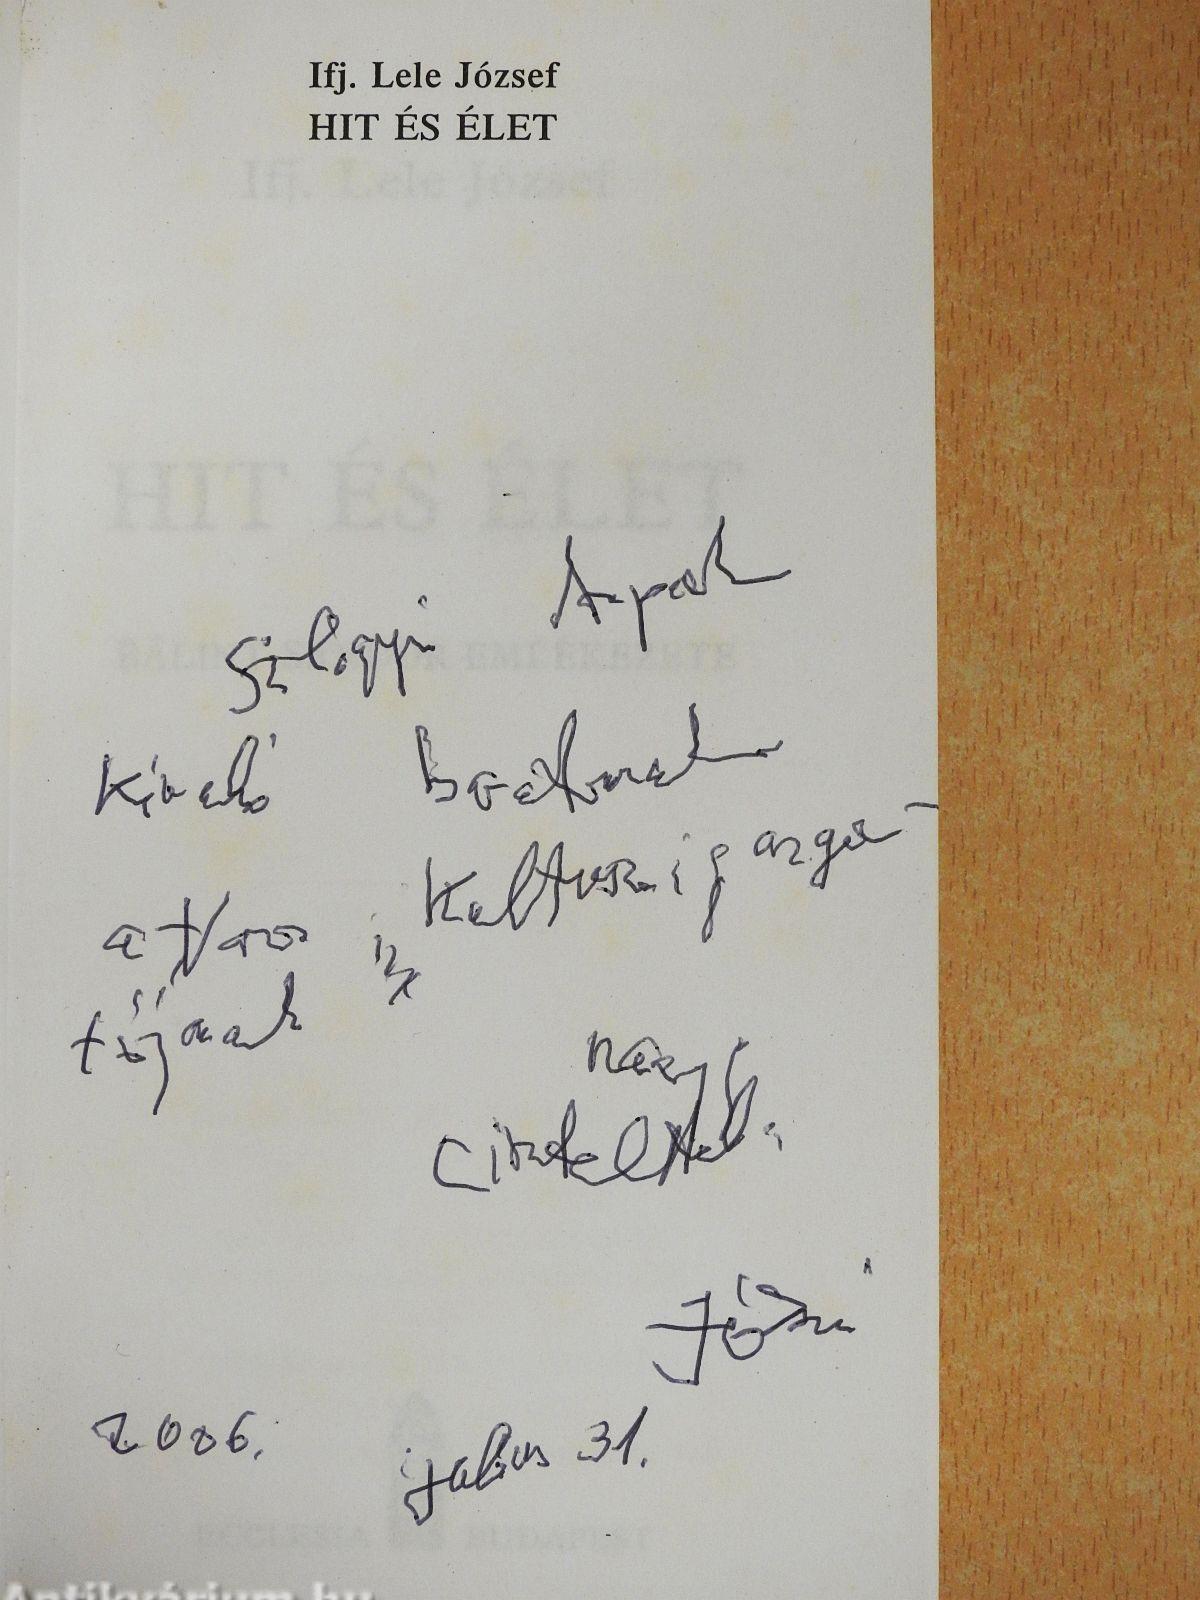 Ifj. Lele József
HIT ÉS ÉLET
Ifj. Lele József
HIT ÉS ÉLET
Szilágyi Árpád
BÁLINT SÁNDOR EMLÉKEZETE
Kiváló barátomnak
a Város kultúrigazga-
tójának
nagy
tisztelettel:
Józsi
2006. július 31.
ECCLESIA BUDAPEST
Antikvárium.hu